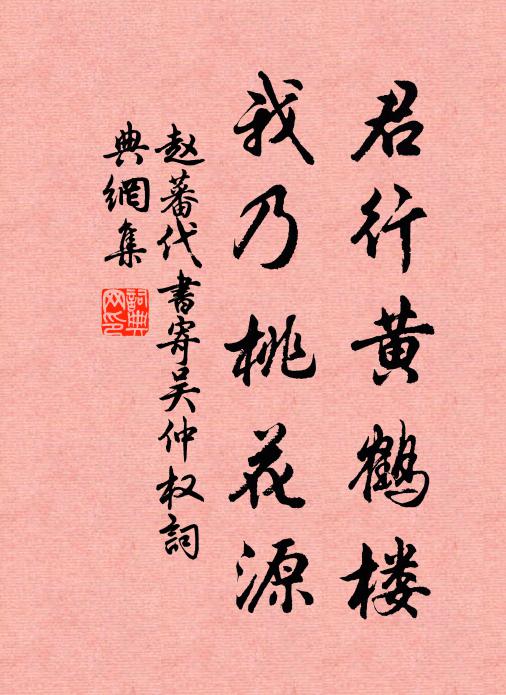 君行黄鹤楼
我乃桃花源
赵蕃代书寄吴仲权詞
典網集
詞典网印